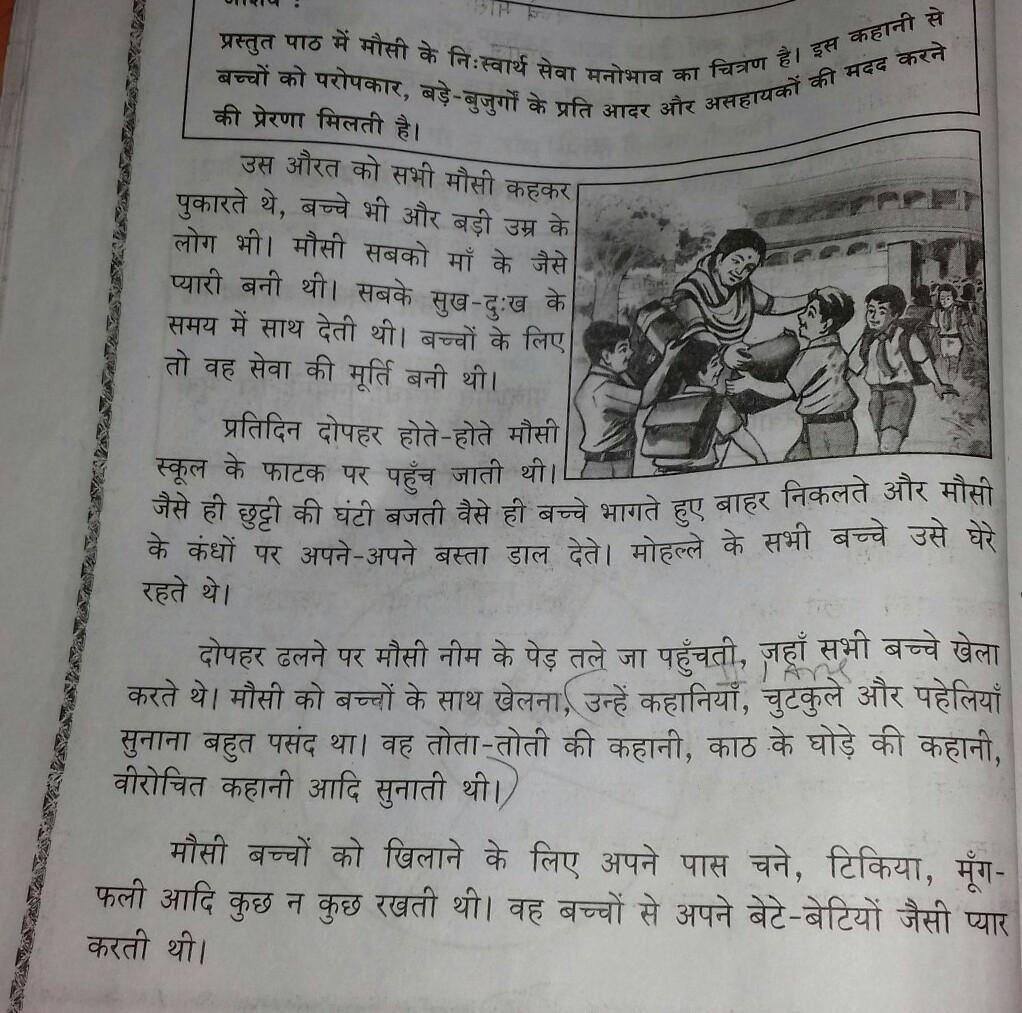 आशय :
प्रस्तुत पाठ में मौसी के निःस्वार्थ सेवा मनोभाव का चित्रण है। इस कहानी से
बच्चों को परोपकार, बड़े-बुजुर्गों के प्रति आदर और असहायकों की मदद करने
की प्रेरणा मिलती है।
उस औरत को सभी मौसी कहकर
पुकारते थे, बच्चे भी और बड़ी उम्र के
लोग भी। मौसी सबको माँ के जैसे
प्यारी बनी थी। सबके सुख-दुःख के
समय में साथ देती थी। बच्चों के लिए
तो वह सेवा की मूर्ति बनी थी।
प्रतिदिन दोपहर होते-होते मौसी
स्कूल के फाटक पर पहुँच जाती थी।
जैसे ही छुट्टी की घंटी बजती वैसे ही बच्चे भागते हुए बाहर निकलते और मौसी
के कंधों पर अपने-अपने बस्ता डाल देते। मोहल्ले के सभी बच्चे उसे घेरे
रहते थे।
दोपहर ढलने पर मौसी नीम के पेड़ तले जा पहुँचती, जहाँ सभी बच्चे खेला
करते थे। मौसी को बच्चों के साथ खेलना, उन्हें कहानियाँ, चुटकुले और पहेलियाँ
सुनाना बहुत पसंद था। वह तोता-तोती की कहानी, काठ के घोड़े की कहानी,
वीरोचित कहानी आदि सुनाती थी।
मौसी बच्चों को खिलाने के लिए अपने पास चने, टिकिया, मूँग-
फली आदि कुछ न कुछ रखती थी। वह बच्चों से अपने बेटे-बेटियों जैसी प्यार
करती थी।